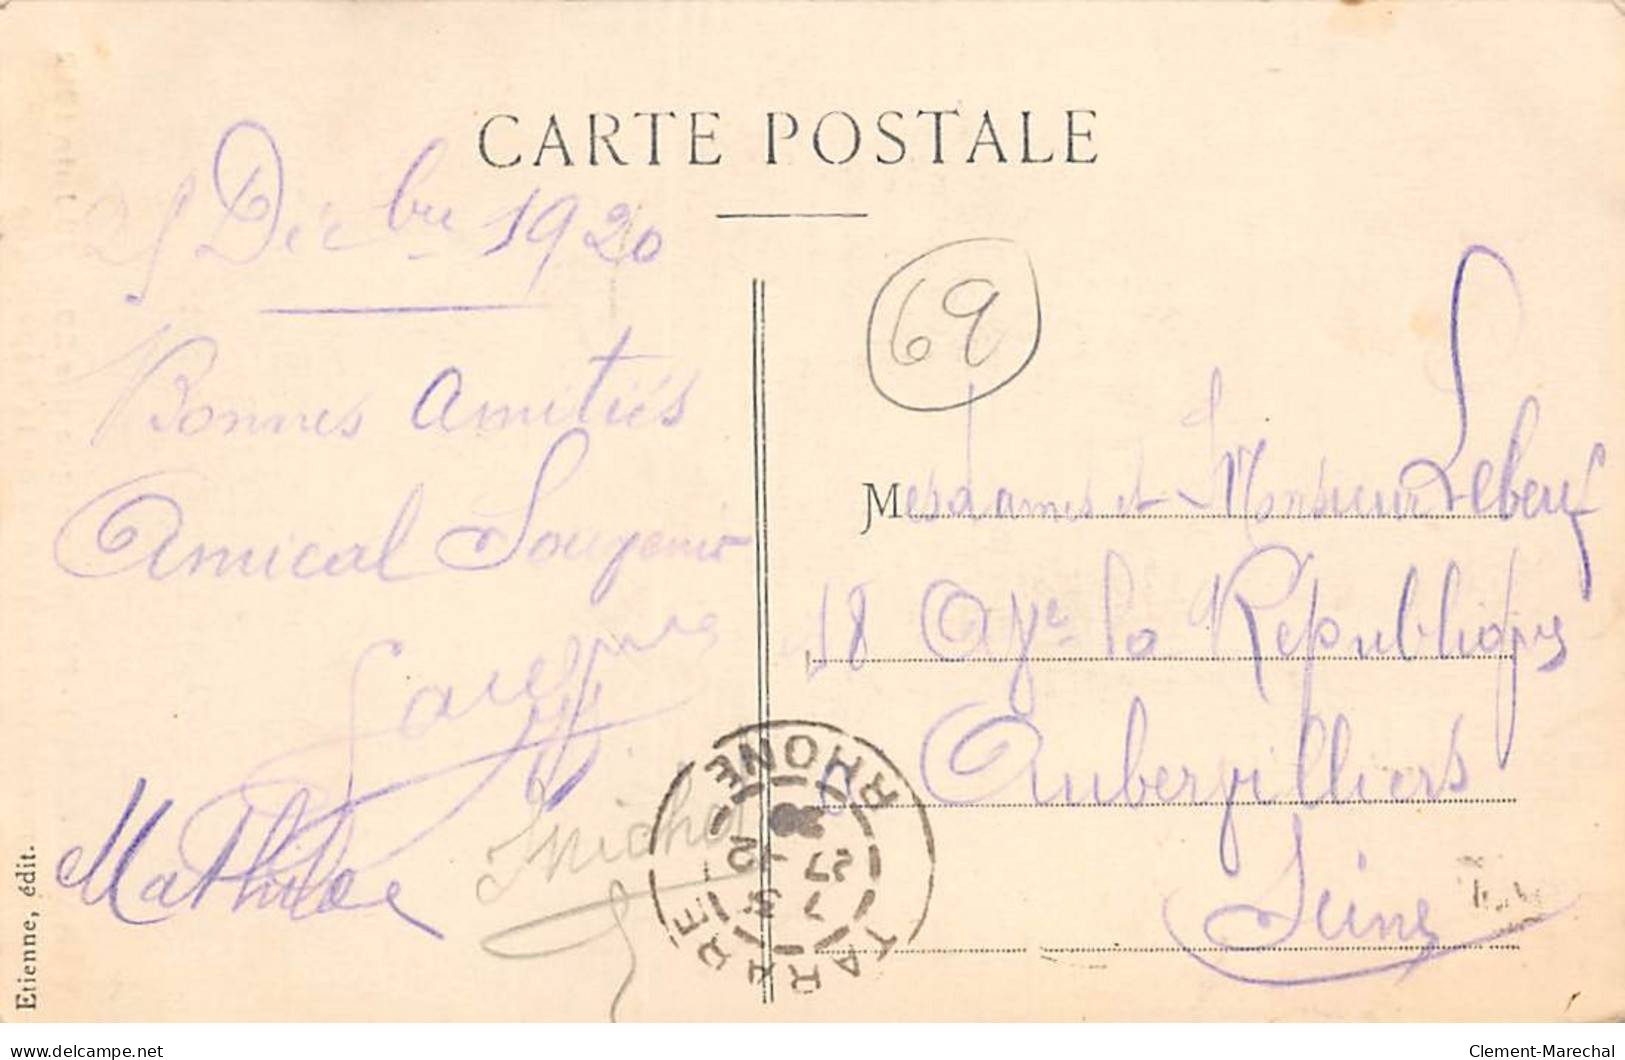 CARTE POSTALE
25 Décbre 1920
Bonnes Amitiés
Amical Souvenir
Mathilde
69
Mesdames et Monsieur Lebeuf
18 Ave la République
Aubervilliers
Seine
TARARE RHONE
27 12
Etienne, édit.
delcampe.net
Clement-Marechal